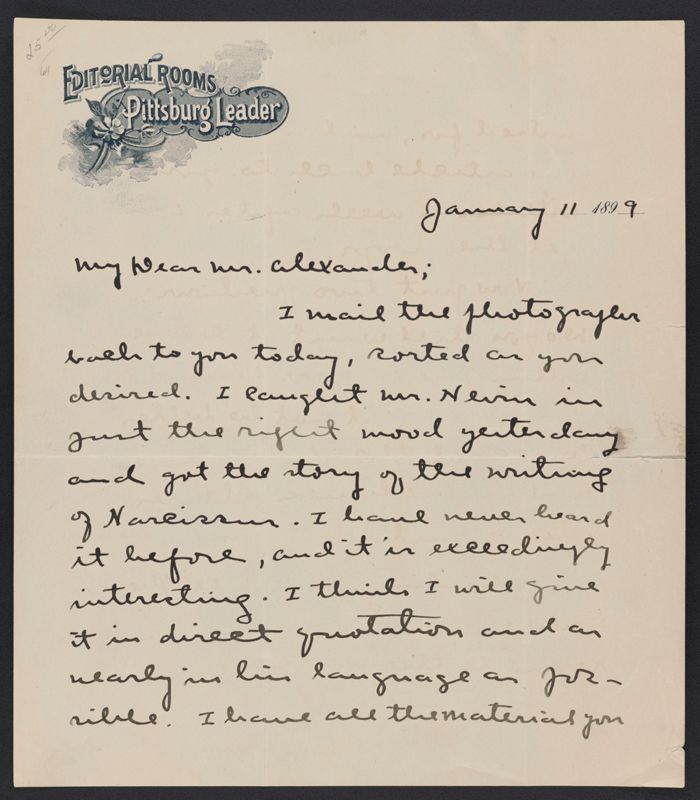 25.00
EDITORIAL ROOMS
Pittsburg Leader
January 11 1899
My Dear Mr. Alexander;
I mail the photographs
back to you today, sorted as you
desired. I caught Mr. Nevin in
just the right mood yesterday
and got the story of the writing
of Narcissus. I have never heard
it before, and it is exceedingly
interesting. I think I will give
it in direct quotation and as
nearly in his language as pos-
sible. I have all the material you